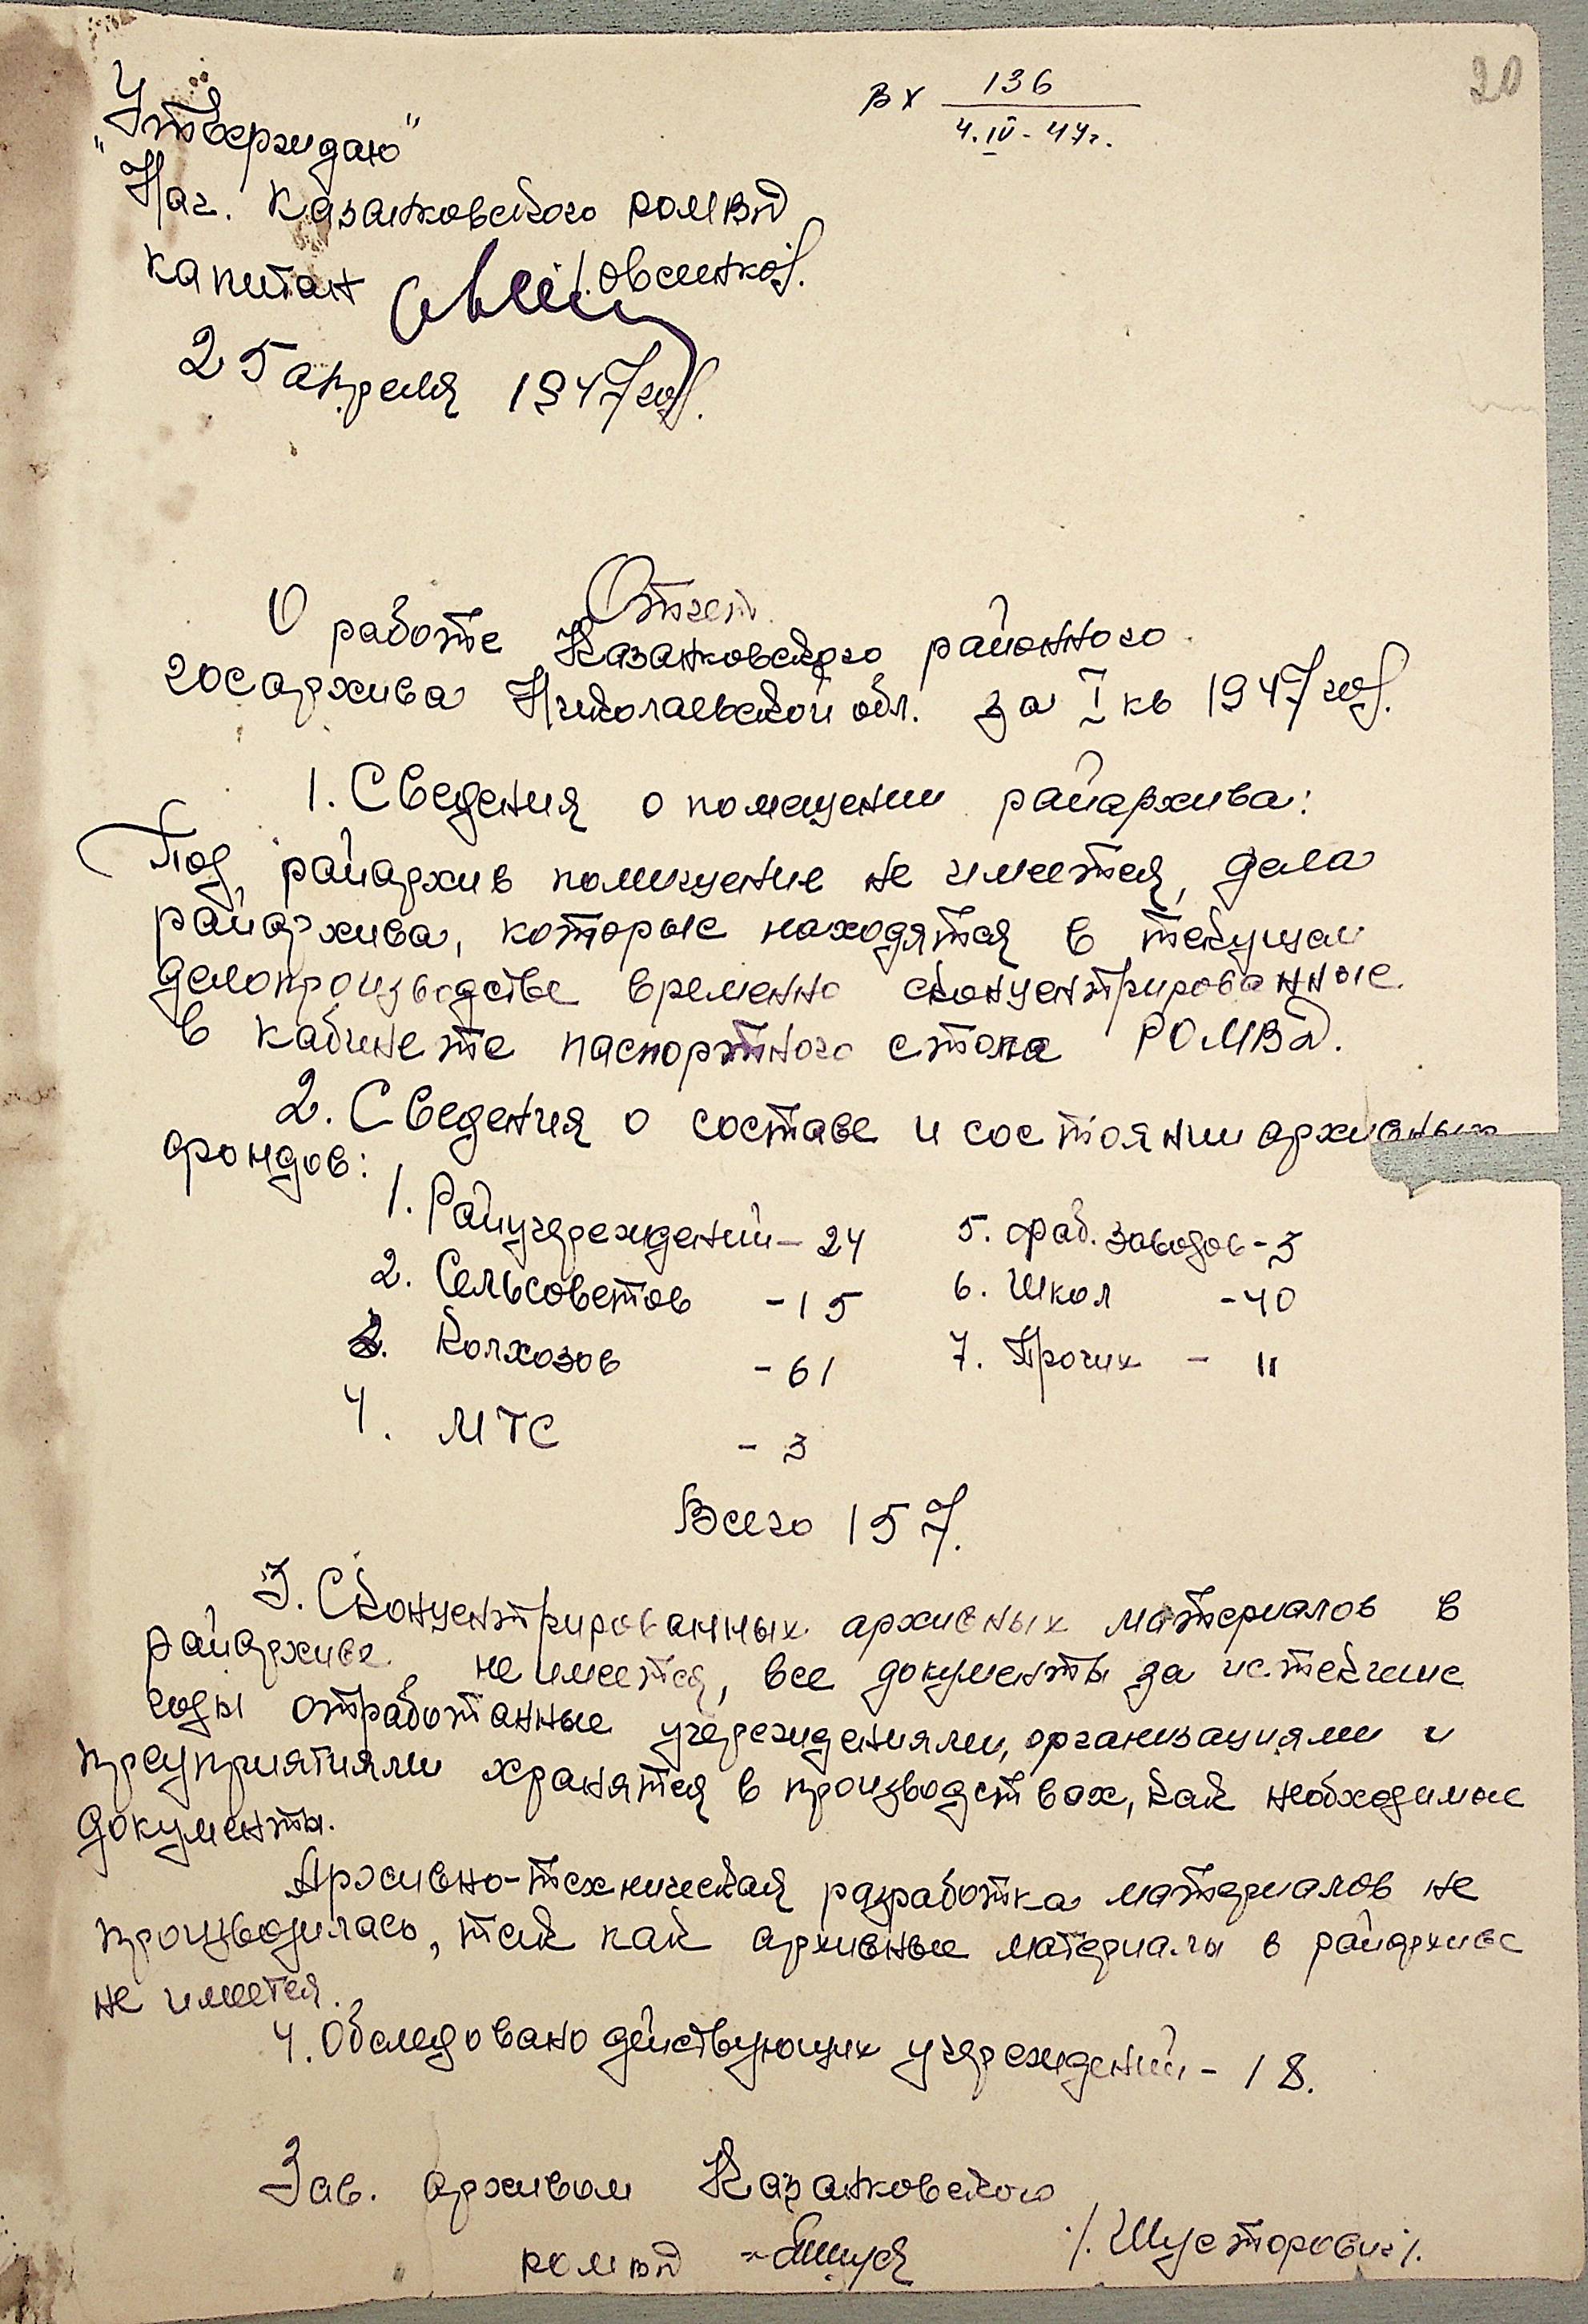 20
вх 136
4.IV-47г.
„Утверждаю"
Нач. Казанковского РОМВД
капитан /Овсиенко/.
25 апреля 1947 год.
Отчет
О работе Казанковского районного
госархива Николаевской обл. за I кв 1947 год.
1. Сведения о помещении райархива:
Под райархив помещение не имеется, дела
райархива, которые находятся в текущем
делопроизводстве временно сконцентрированные
в кабинете паспортного стола РОМВД.
2. Сведения о составе и состоянии архивных
фондов:
1. Райучреждений - 24 5. Фаб. заводов - 3
2. Сельсоветов - 15 6. Школ - 40
3. Колхозов - 61 7. Прочих - 11
4. МТС - 3
Всего 157.
3. Сконцентрированных архивных материалов в
райархиве не имеется, все документы за истекшие
годы отработанные учреждениями, организациями и
предприятиями хранятся в производствах, как необходимые
документы.
Архивно-техническая разработка материалов не
производилась, так как архивные материалы в райархиве
не имеется.
4. Обследовано действующих учреждений - 18.
Зав. архивом Казанковского
РОМВД /Шусторович/.